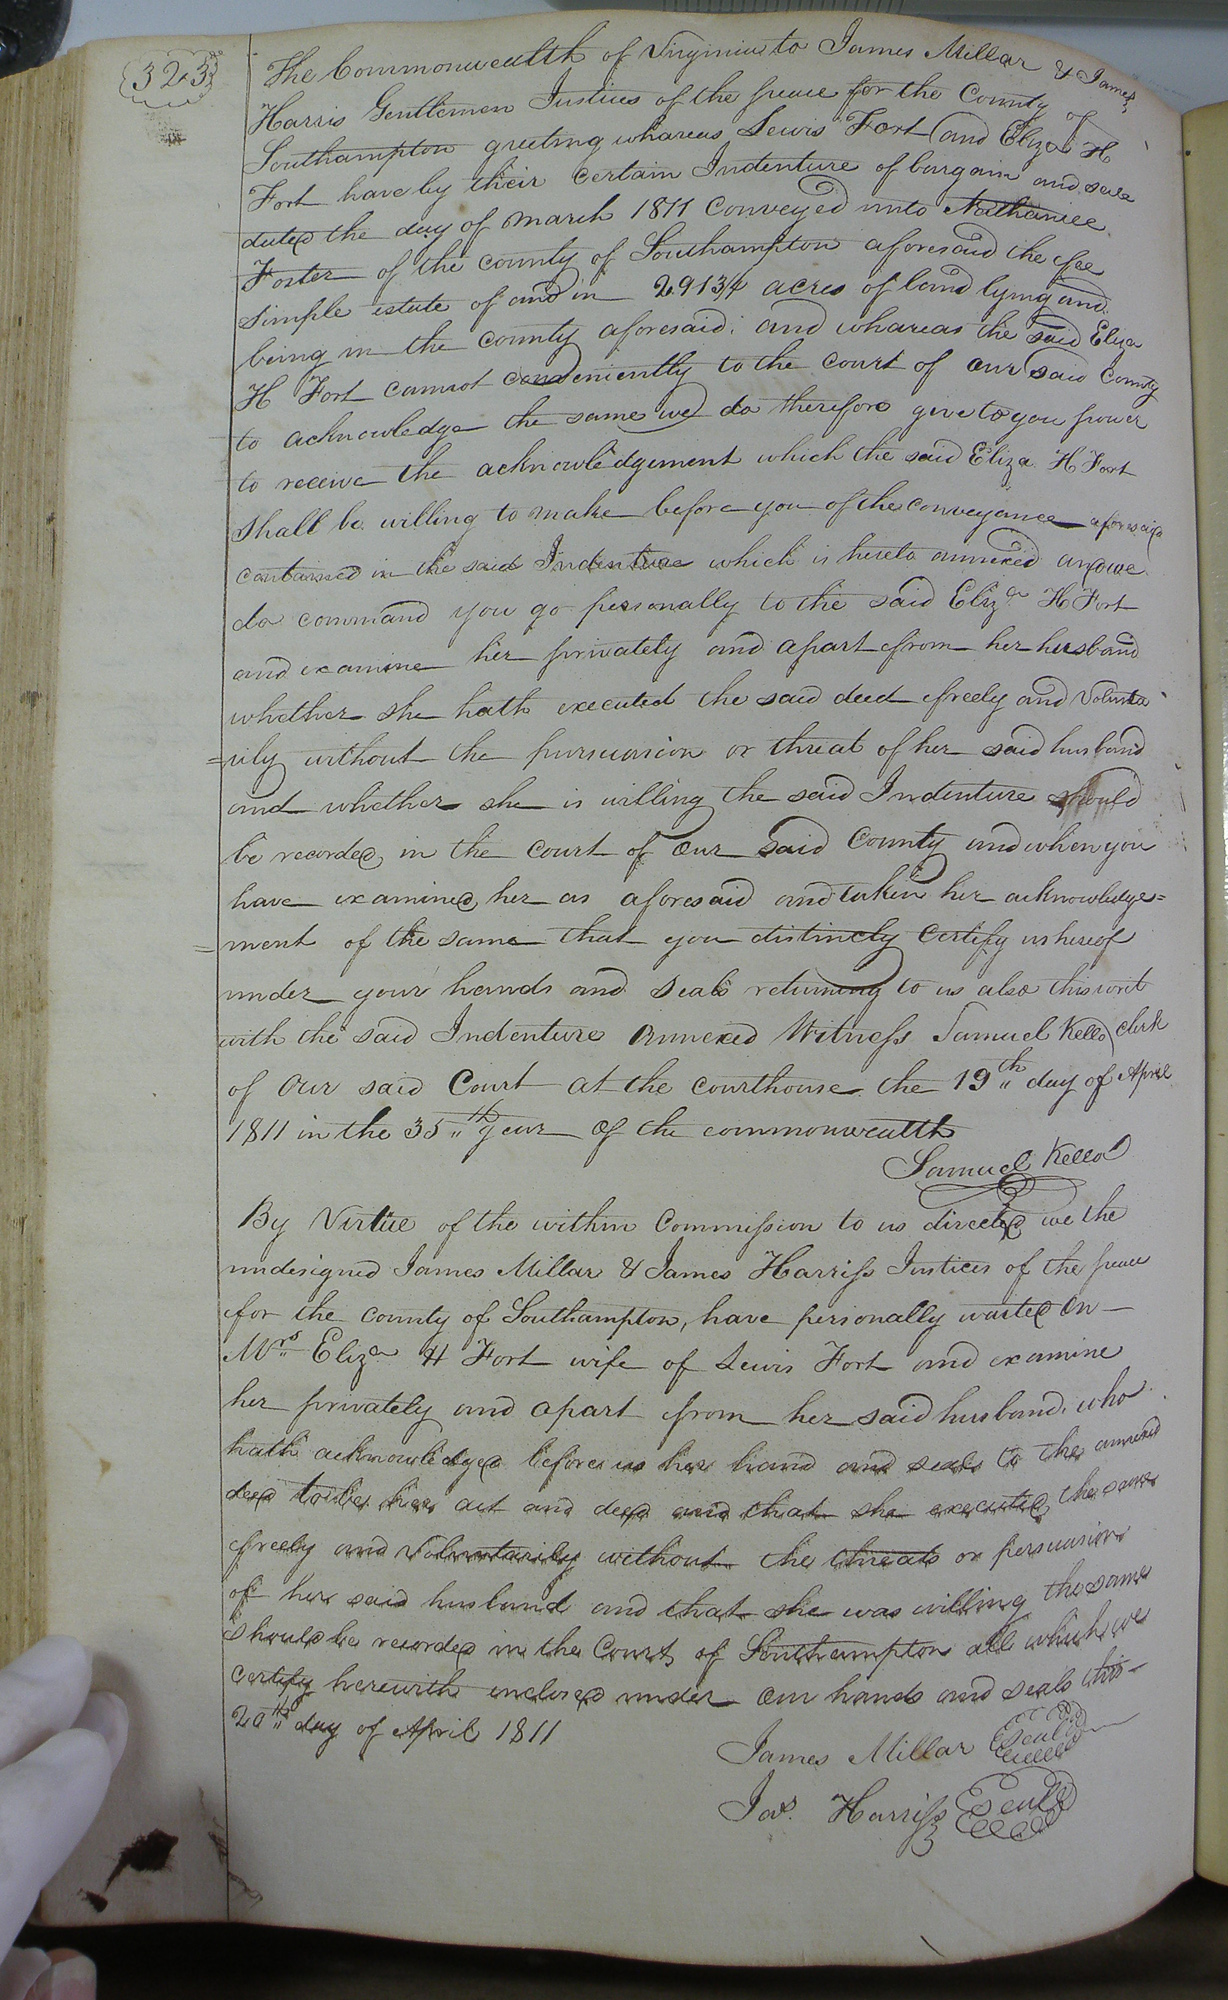 323
The Commonwealth of Virginia to James Millar & James
Harris Gentlemen Justices of the peace for the County of
Southampton greeting whareas Lewis Fort and Eliza H
Fort have by their certain Indenture of bargain and sale
dated the day of march 1811 Conveyed unto Nathaniel
Foster of the county of Southampton aforesaid the fee
simple estate of and in 291 3/4 acres of land lying and
being in the county aforesaid: and whareas the said Eliza
H Fort cannot condeniently to the court of our said County
to acknowledge the same we do therefore give to you power
to receive the acknowledgement which the said Eliza H Fort
shall be willing to make before you of the conveyance aforesaid
contained in the said Indenture which is hereto annexed and we
do command you go personally to the said Eliza H Fort
and examine her privately and apart from her husband
whether she hath executed the said deed freely and Volunta
=rily without the pursuasion or threat of her said husband
and whether she is willing the said Indenture should
be recorded in the court of our said County and when you
have examined her as aforesaid and taken her acknowledge=
=ment of the same that you distincly Certify us hereof
under your hands and seals returning to us also this writ
with the said Indenture annexed Witness Samuel Kello clerk
of our said Court at the courthouse the 19th day of April
1811 in the 35th year of the commonwealth
Samuel Kello
By Virtue of the within Commission to us directed we the
undesigned James Millar & James Harriss Justices of the peace
for the county of Southampton, have personally waited on
Mrs Eliza H Fort wife of Lewis Fort and examine
her privately and apart from her said husband. who
hath acknowledged before us her hand and seals to the annexed
deed to be her act and deed and that she executed the same
freely and Voluntarily without the threats or persuasion
of her said husband and that she was willing the same
should be recorded in the Court of Southampton all which we
certify herewith inclosed under our hands and seals this
20th day of April 1811
James Millar Seal
Jas. Harriss Seal